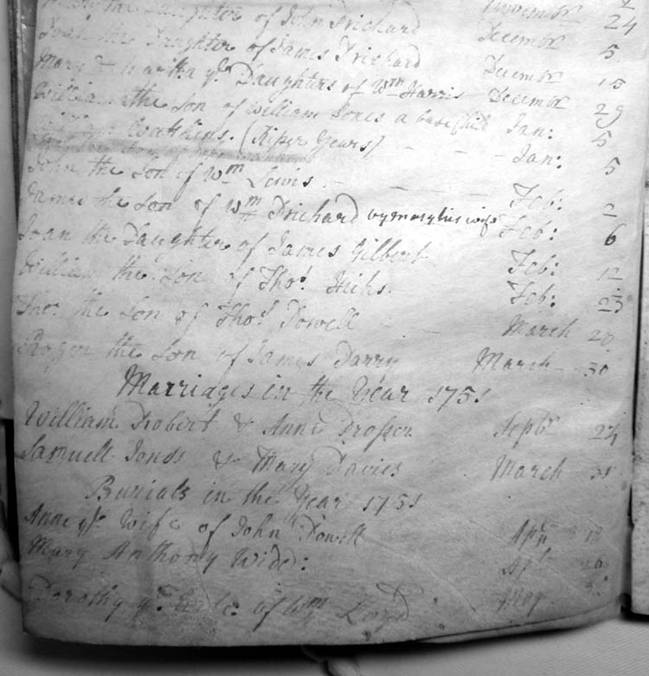 the Daughter of John Prichard November 24
the Daughter of James Prichard Decembr 5
Mary & Martha ye Daughters of Wm Harris Decembr 15
William the Son of William Jones a base child Decembr 29
Watkins (Riper Years) Jan: 5
Jan: 5
John the Son of Wm Lewis Feb: 2
James the Son of Wm Prichard by mary his wife Feb: 6
Joan the Daughter of James Gilbert Feb: 12
William the Son of Thos Hicks Feb: 23
the Son of Thos Powell March 20
Roger the Son of James Parry March 30
Marriages in the Year 1751
William Probert & Anne Prosser Septbr 24
Samuell Jones & Mary Davies March 31
Burials in the Year 1751
Anne ye Wife of John Powell Apr
Mary Anthony Wido: Apl
Dorothy ye of Wm Lloyd May